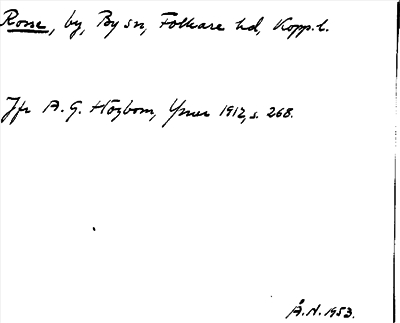 Rosse, by, By sn, Folkare hd, Kopp. l.
Jfr A. G. Högbom, Ymer 1912, s. 268.
Å. N. 1953.